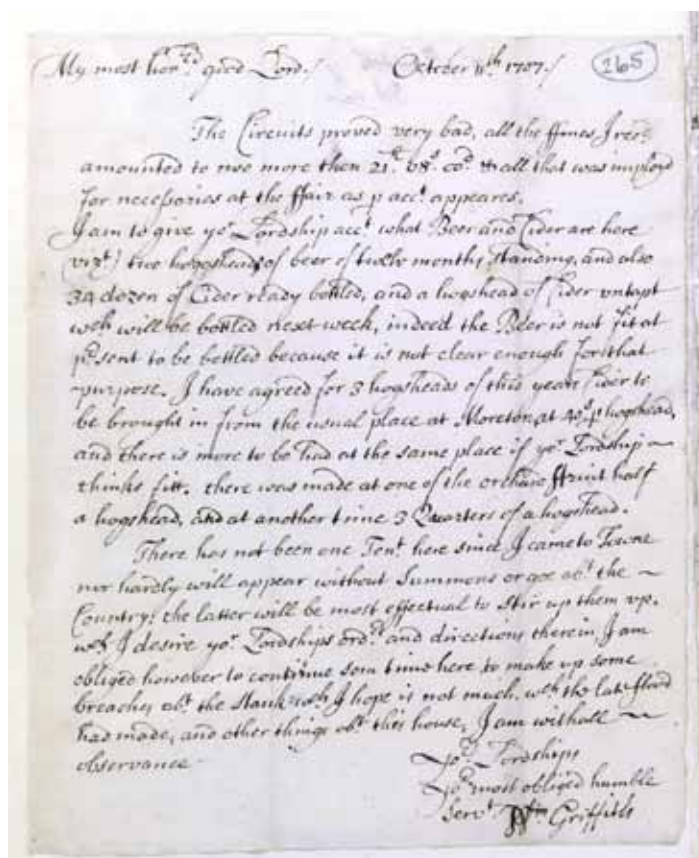 My most hon:red good Lord./ October 11th 1707./ 265
The Circuits proved very bad, all the ffines I recd
amounted to noe more then 21li 08s 00d all that was imployd
for necessaries at the ffair as p acct appeares.
I am to give yor Lordship acct what Beer and Cider are here
(vizt) two hogsheads of beer of twelv months standing, and also
34 dozen of Cider ready bottled, and a hogshead of Cider vntapt
wch will be bottled next week, indeed the Beer is not fit at
psent to be bottled because it is not clear enough for that
purpose. I have agreed for 3 hogsheads of this years Cider to
be brought in from the usual place at Moreton, at 40s p hogshead,
and there is more to be had at the same place if yor Lordship ~
thinks fitt. there was made at one of the orchard ffruit half
a hogshead, and at another time 3 Quarters of a hogshead.
There has not been one Tent here since I came to Towne
nor hardly will appear without Summons or goe abt the ~
Country: the latter will be most effectual to stir up them vp.
wch I desire yor Lordships ordrs and directions therein, I am
obliged however to continue som time here to make up some
breaches abt the Stank wch I hope is not much, wch the late fflood
had made, and other things abt this house, I am withall ~
observance
yor Lordships
yor most obliged humble
Servt Wm Griffith